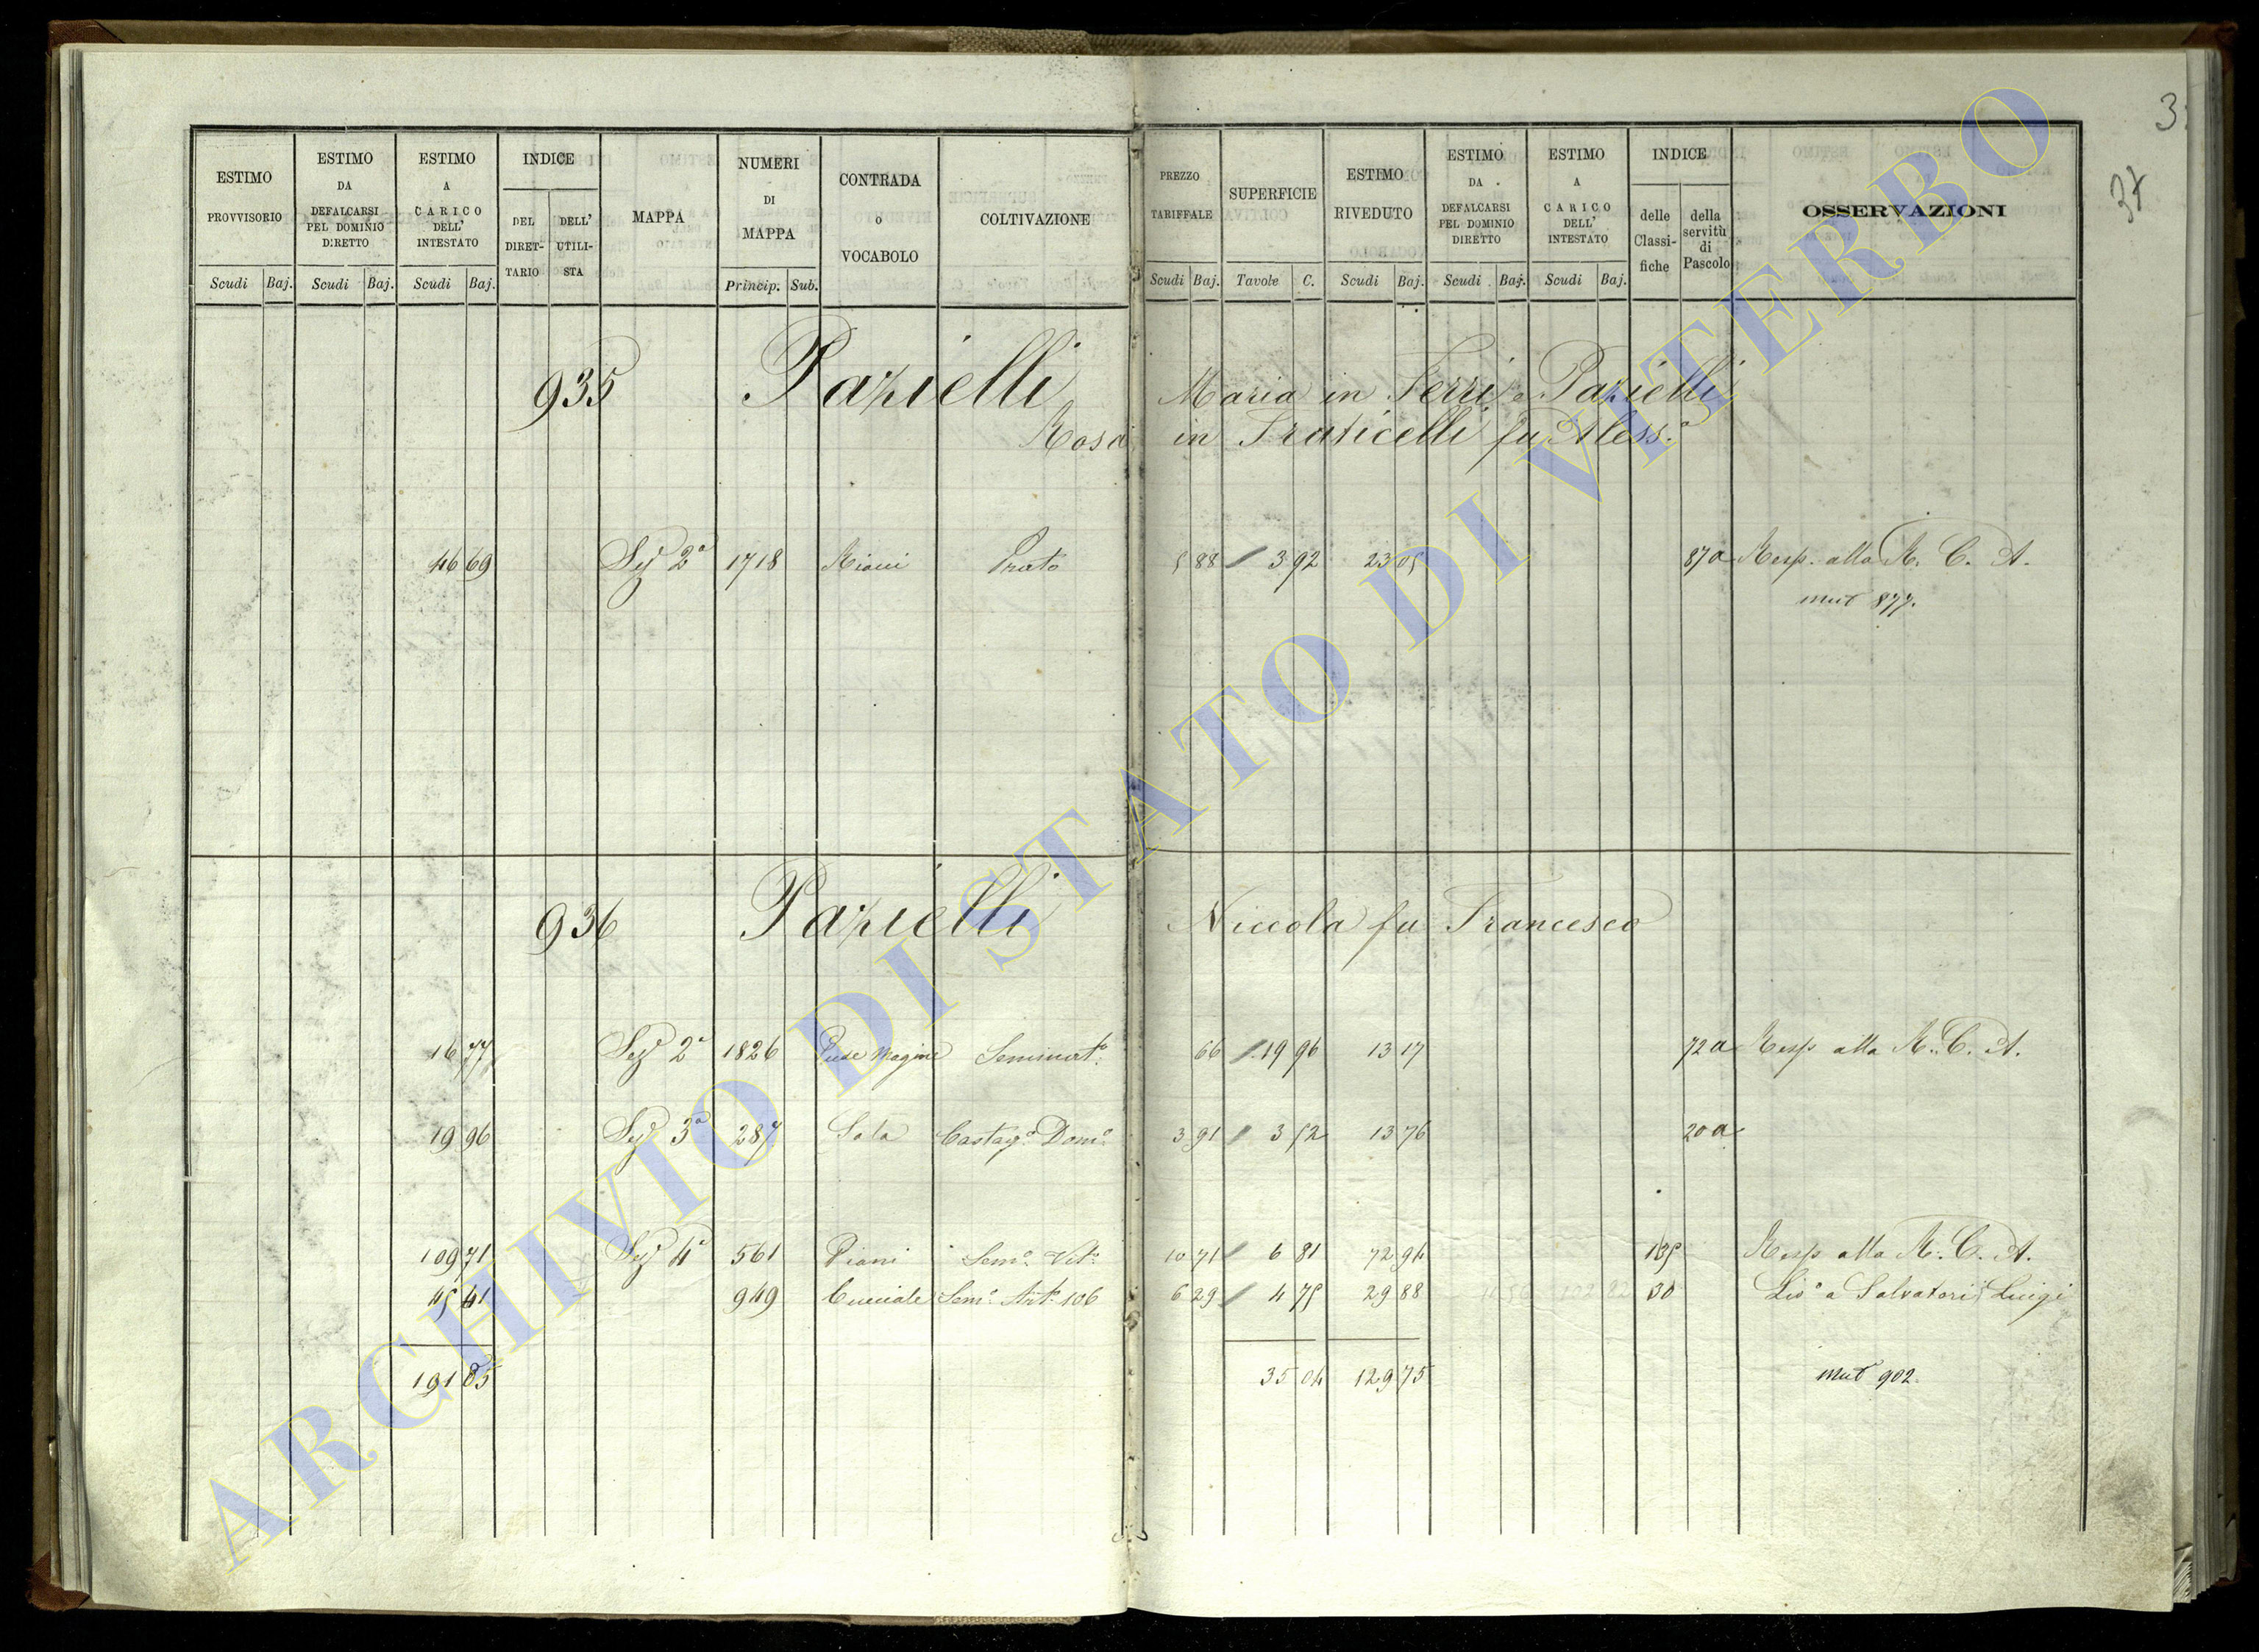 3
37
ESTIMO PROVVISORIO Scudi Baj.
ESTIMO DA DEFALCARSI PEL DOMINIO DIRETTO Scudi Baj.
ESTIMO A CARICO DELL' INTESTATO Scudi Baj.
INDICE DEL DIRETTARIO DELL' UTILISTA
MAPPA
NUMERI DI MAPPA Princip. Sub.
CONTRADA o VOCABOLO
COLTIVAZIONE
PREZZO TARIFFALE Scudi Baj.
SUPERFICIE Tavole C.
ESTIMO RIVEDUTO Scudi Baj.
ESTIMO DA DEFALCARSI PEL DOMINIO DIRETTO Scudi Baj.
ESTIMO A CARICO DELL' INTESTATO Scudi Baj.
INDICE delle Classifiche della servitù di Pascolo
OSSERVAZIONI
935 Pazielli Maria in Ferri e Pazielli
Rosa in Fraticelli fu Aless.o
46 69 Sez.e 2a 1718 Prato 5 88 3 92 23 05 87 a Resp. alla R. C. A.
mut 877.
936 Pazielli Niccola fu Francesco
16 77 Sez.e 2a 1826 Seminat.o 66 19 96 13 17 72 a Resp alla R. C. A.
19 96 Sez.e 3a 287 Sala Castag.o Dom.o 3 91 3 52 13 76 20 a
109 71 Sez.e 4a 561 Piani Sem.o Vit.o 10 71 6 81 72 94 135 Resp alla R. C. A.
45 41 949 Sem.o Art.o 106 6 29 4 75 29 88 30 Liv.o a Salvatori Luigi
191 85 35 04 129 75 mut 902.
ARCHIVIO DI STATO DI VITERBO